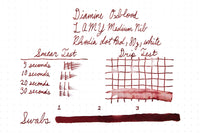 Diamine Oxblood
LAMY Medium Nib
Rhodia dot Pad, 80g, white
Smear Test
Drip Test
5 seconds
10 seconds
20 seconds
30 seconds
1
2
3
Swabs